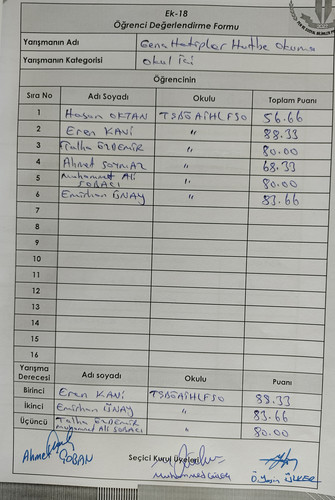 Ek-18
Öğrenci Değerlendirme Formu
Yarışmanın Adı Genç Hatipler Hutbe Okuma
Yarışmanın Kategorisi okul içi
Öğrencinin
Sıra No Adı Soyadı Okulu Toplam Puanı
1 Hasan OKTAN TSDGAİHLFSO 56.66
2 Eren KAVİ " 88.33
3 Talha ÖZDEMİR " 80.00
4 Ahmet SOYMAZ " 68.33
5 Muhammet Ali SOBACI " 80.00
6 Emirhan ÜNAY " 83.66
7
8
9
10
11
12
13
14
15
16
Yarışma Derecesi Adı soyadı Okulu Puanı
Birinci Eren KAVİ TSDGAİHLFSO 88.33
İkinci Emirhan ÜNAY " 83.66
Üçüncü Talha ÖZDEMİR
Muhammed Ali SOBACI " 80.00
Seçici Kurul Üyeleri
Ahmet ÇOBAN Ö. ÜLKER